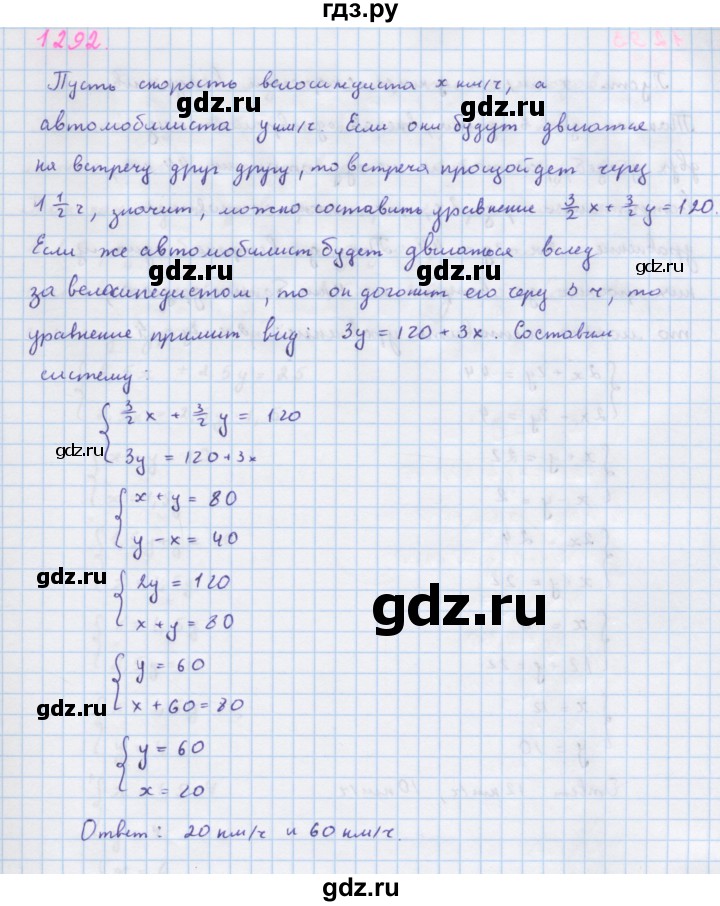 гдз.ру
1292
Пусть скорость велосипедиста x км/ч, а
gdz.ru
автомобилиста y км/ч. Если они будут двигаться
на встречу друг другу, то встреча произойдет через
gdz.ru gdz.ru
1 1/2 ч, значит, можно составить уравнение 3/2 x + 3/2 y = 120.
Если же автомобилист будет двигаться вслед
gdz.ru gdz.ru
за велосипедистом, то он догонит его через 3 ч, то
уравнение примит вид: 3y = 120 + 3x. Составим
систему:
{ 3/2 x + 3/2 y = 120
gdz.ru gdz.ru
3y = 120 + 3x
{ x + y = 80
y - x = 40
gdz.ru
{ 2y = 120
x + y = 80
gdz.ru
{ y = 60
gdz.ru
x + 60 = 80
{ y = 60
x = 20
Ответ: 20 км/ч и 60 км/ч.
gdz.ru
gdz.ru